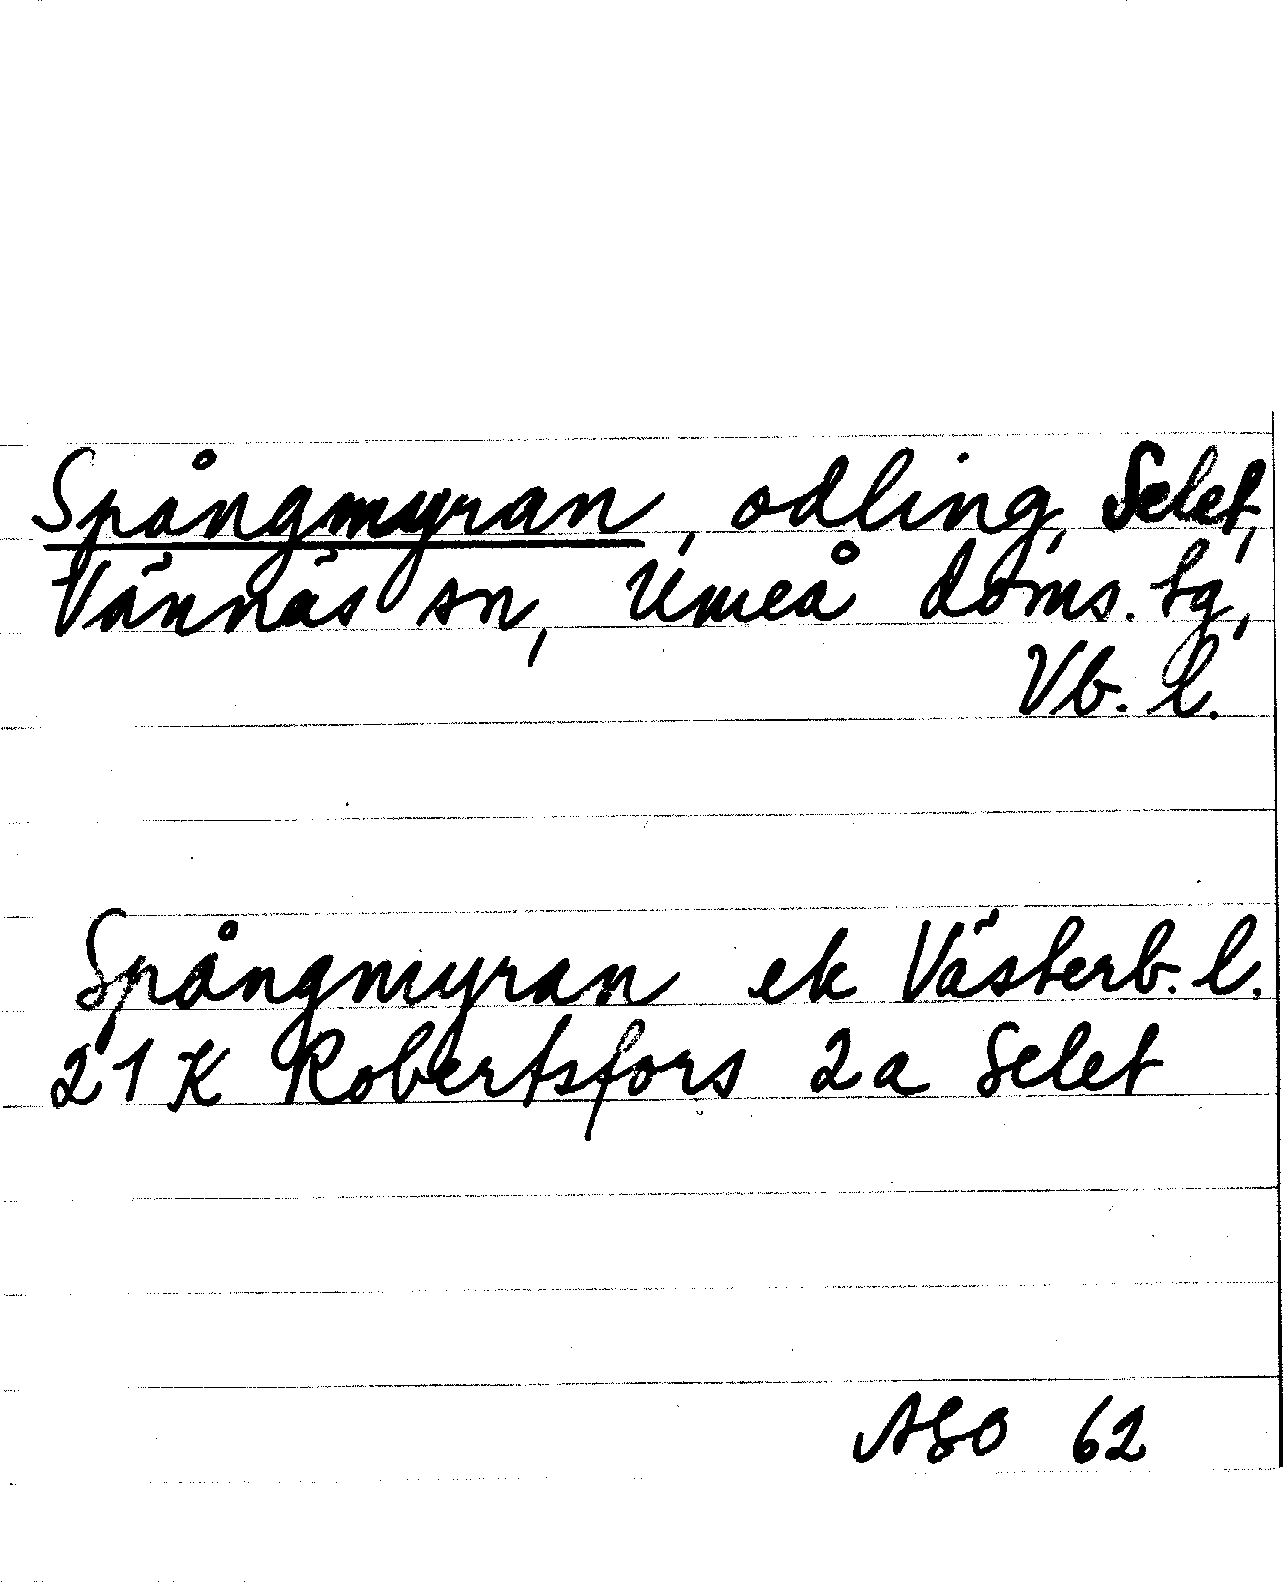 Spångmyran, odling, Selet,
Vännäs sn, Umeå doms. tg,
Vb. l.
Spångmyran ek Västerb. l.
21 K Robertsfors 2a Selet
ASO 62